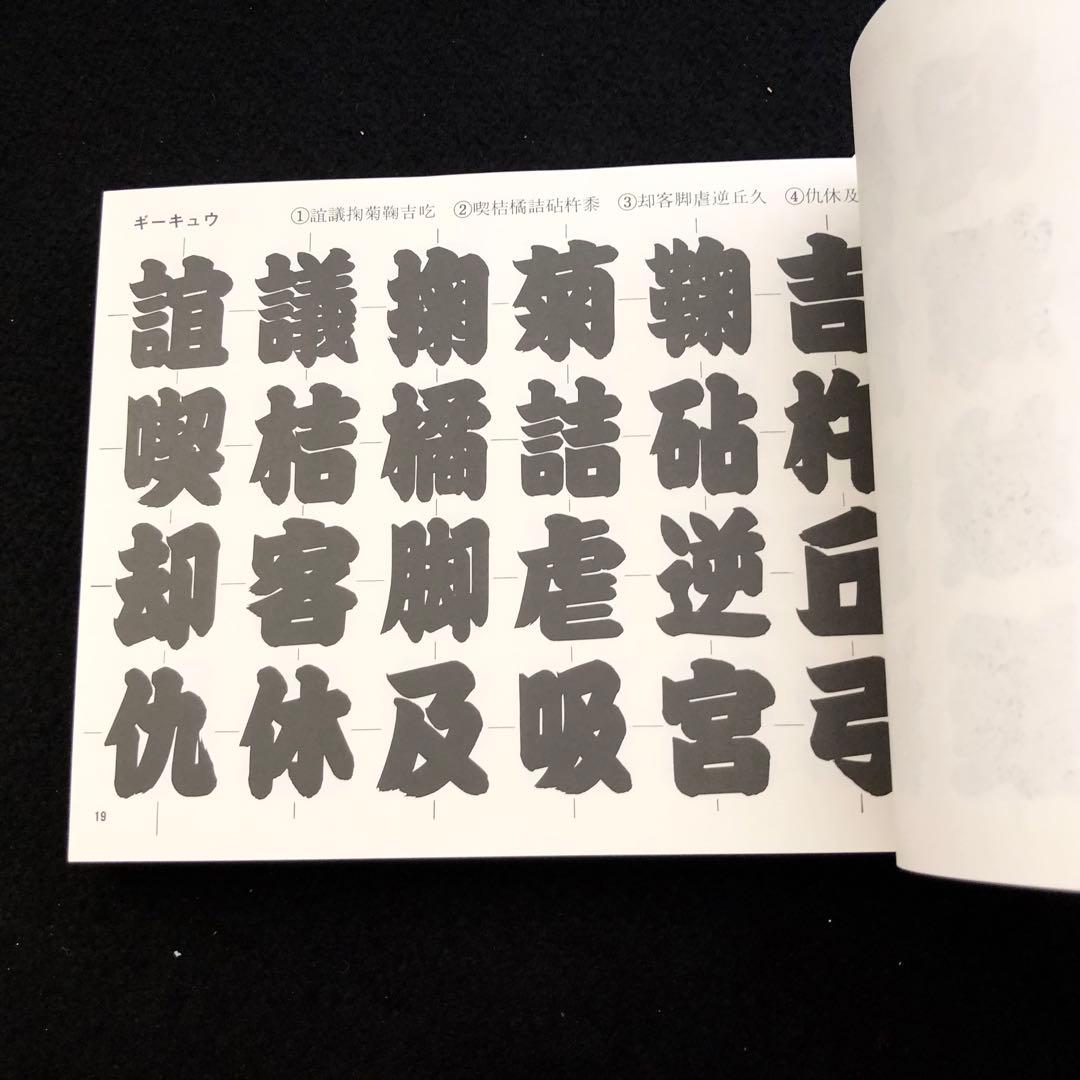 ギーキュウ ①誼議掬菊鞠吉吃 ②喫桔橘詰砧杵黍 ③却客脚虐逆丘久 ④仇休及
誼議掬菊鞠吉
喫桔橘詰砧杵
却客脚虐逆丘
仇休及吸宮弓
19